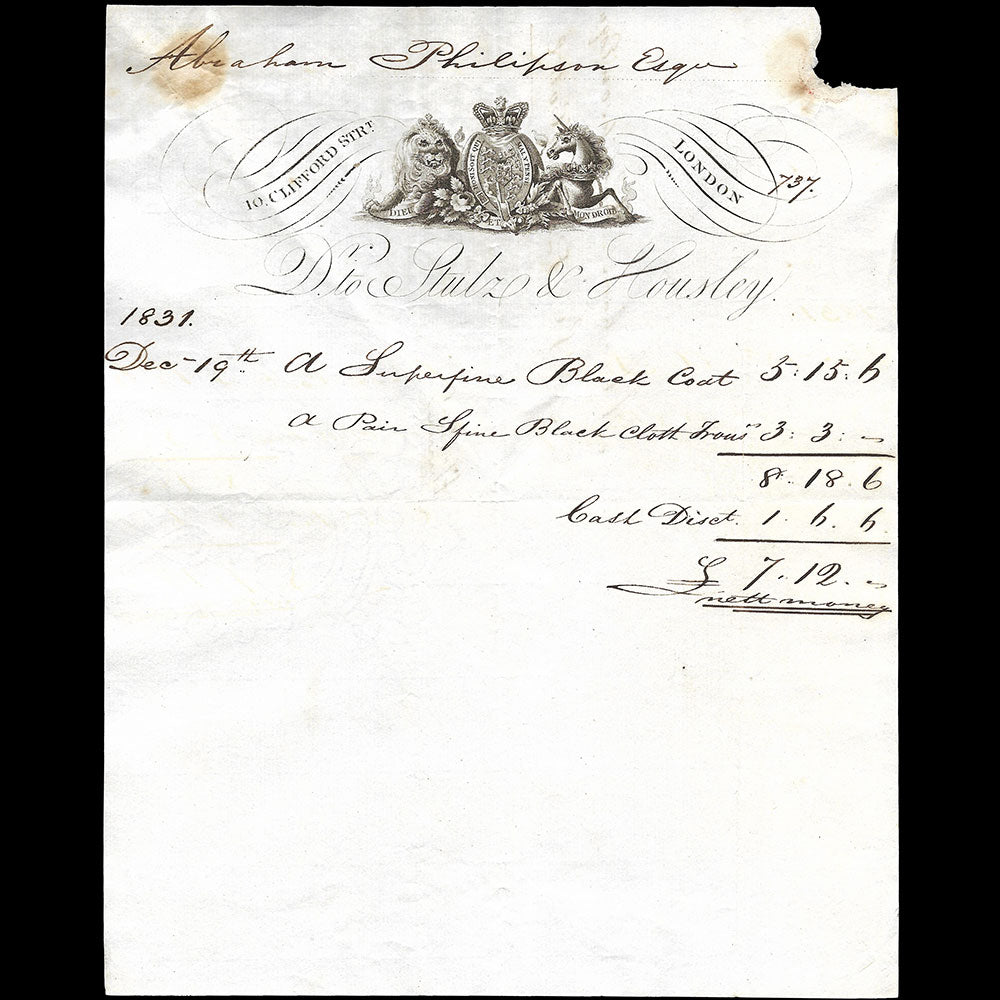 Abraham Philipson Esqre
10, CLIFFORD STRT
LONDON
737.
DIEU ET MON DROIT
Dr. to Stulz & Housley.
1831.
Dec- 19th A Superfine Black Coat 5: 15: 6
A Pair Sfine Black Cloth Trous 3: 3: -
8. 18. 6
Cash Disct. 1. 6. 6
£ 7. 12. -
nett money